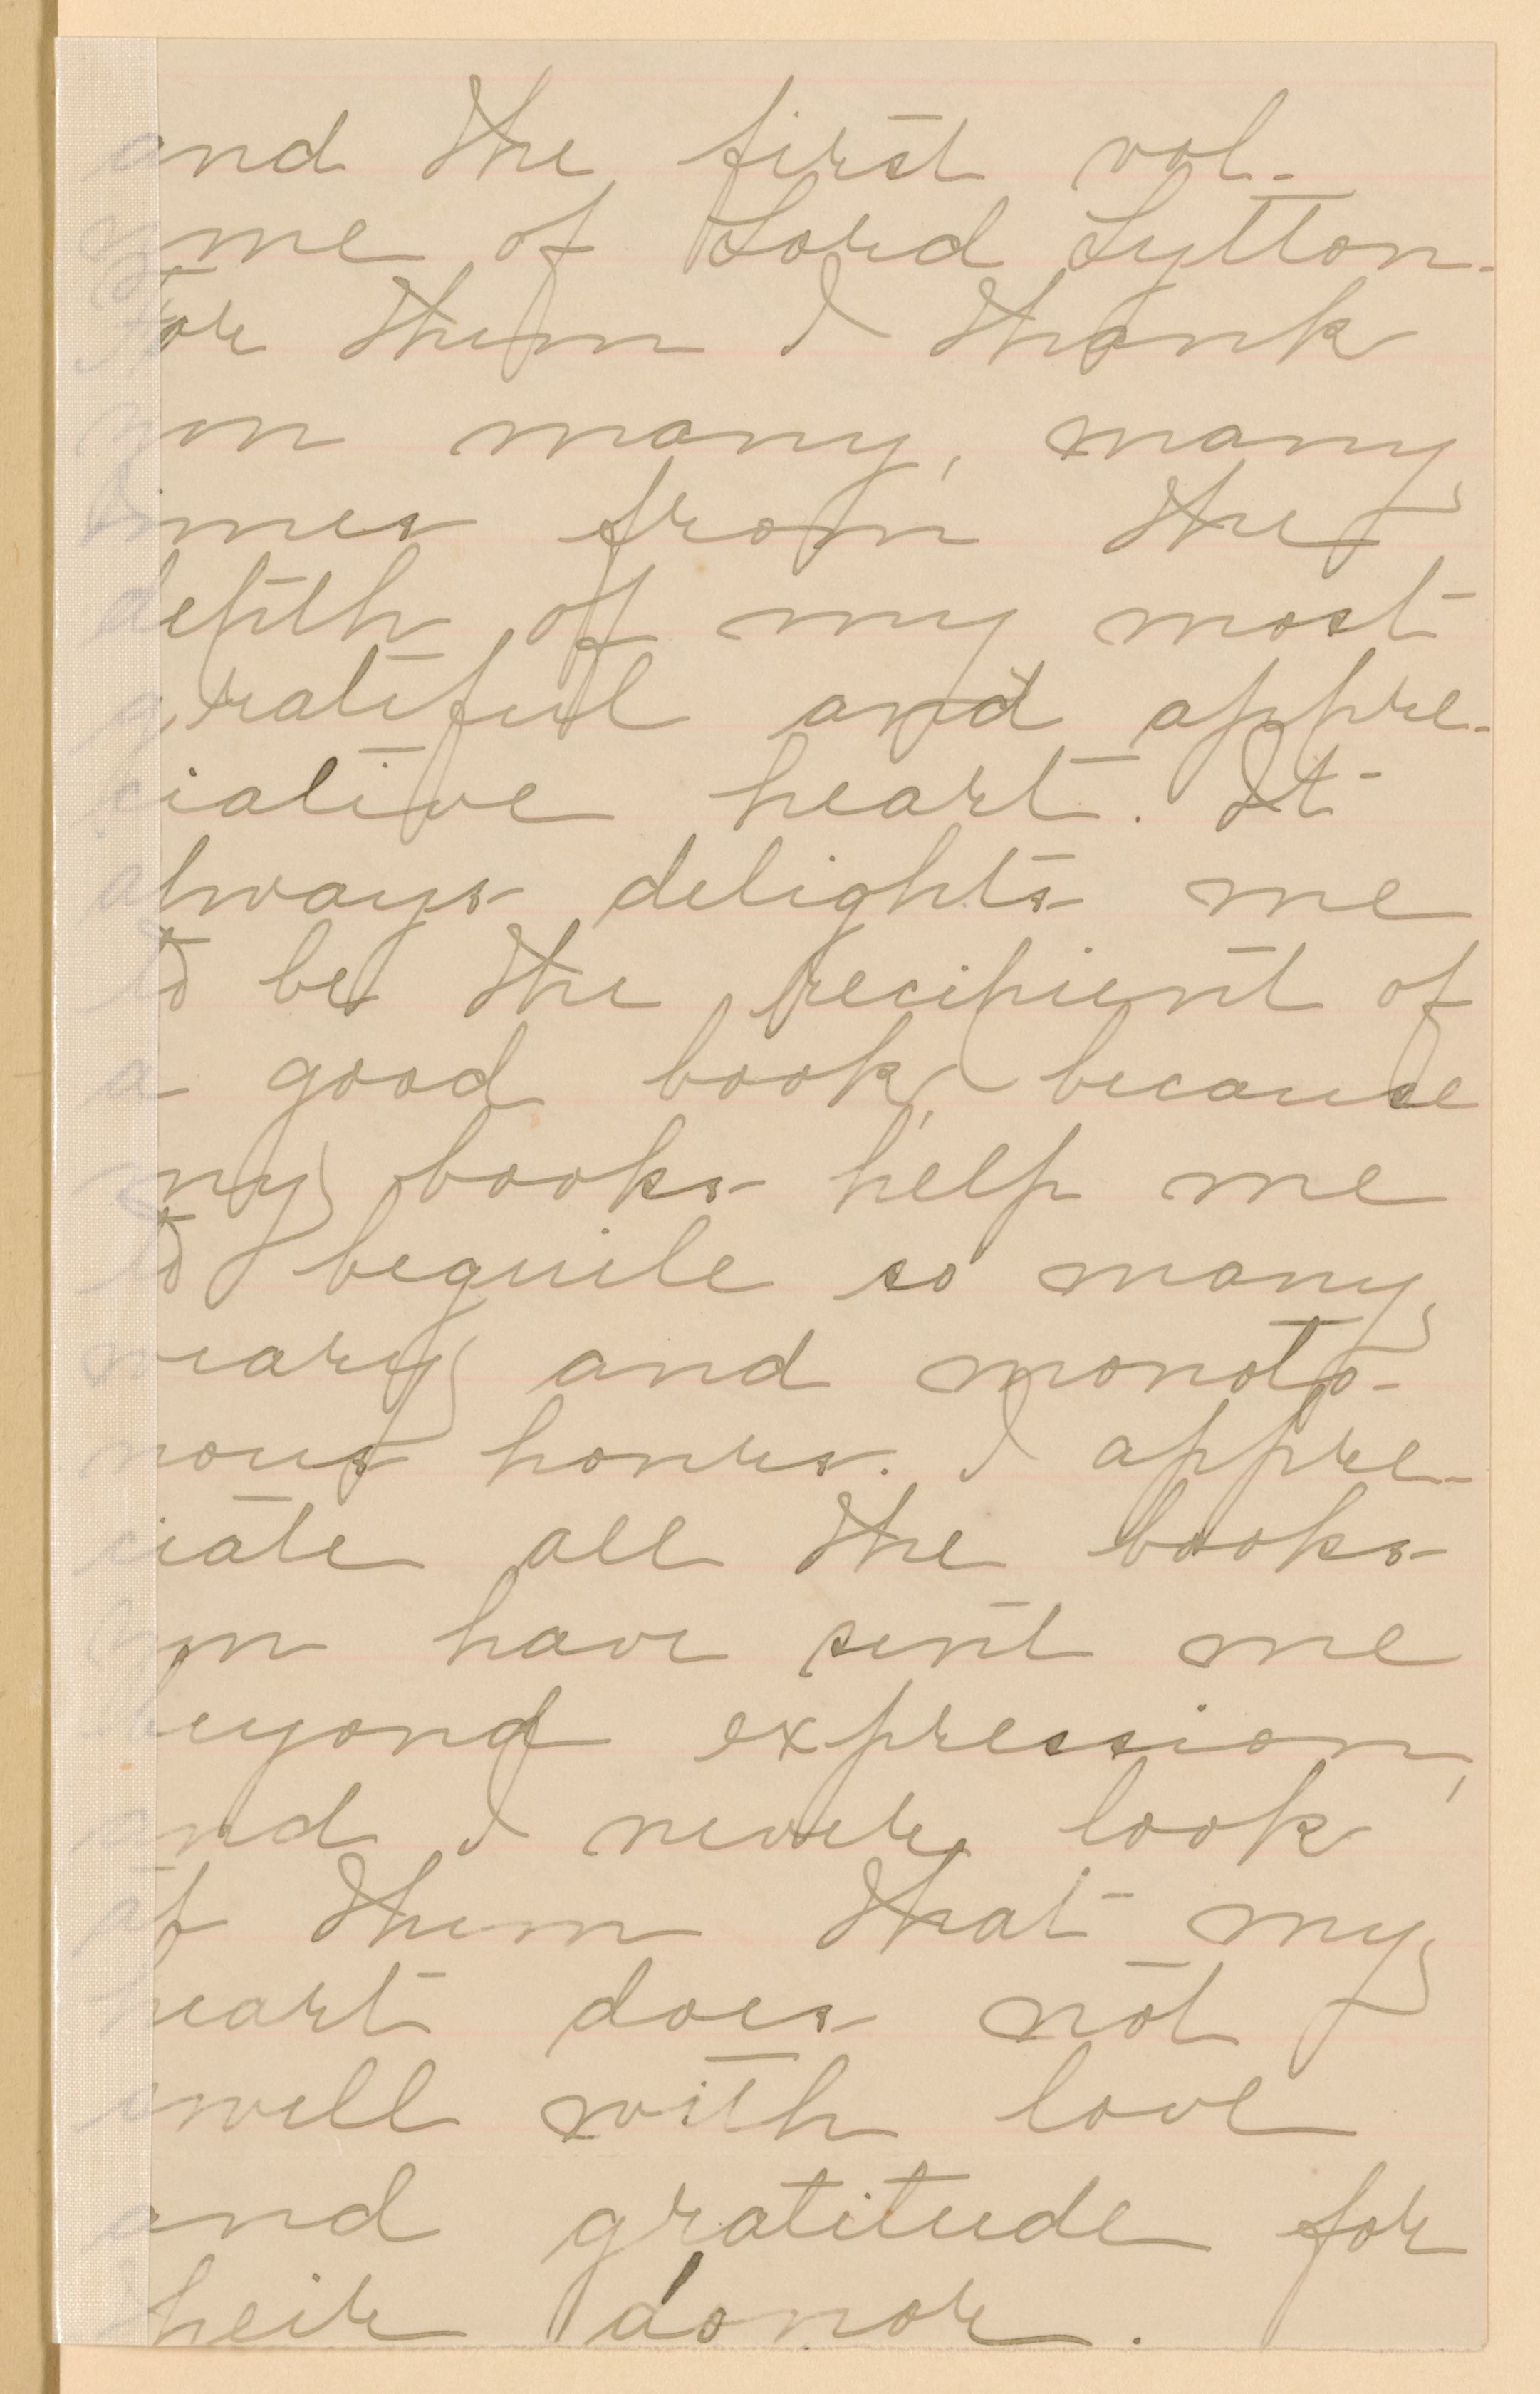 and the first vol-
ume of Lord Lytton.
For them I thank
you many, many
times from the
depth of my most
grateful and appre-
ciative heart. It
always delights me
to be the recipient of
a good book, because
my books help me
to beguile so many
weary and monoto-
nous hours. I appre-
ciate all the books
you have sent me
beyond expression,
and I never look
at them that my
heart does not
swell with love
and gratitude for
their donor.